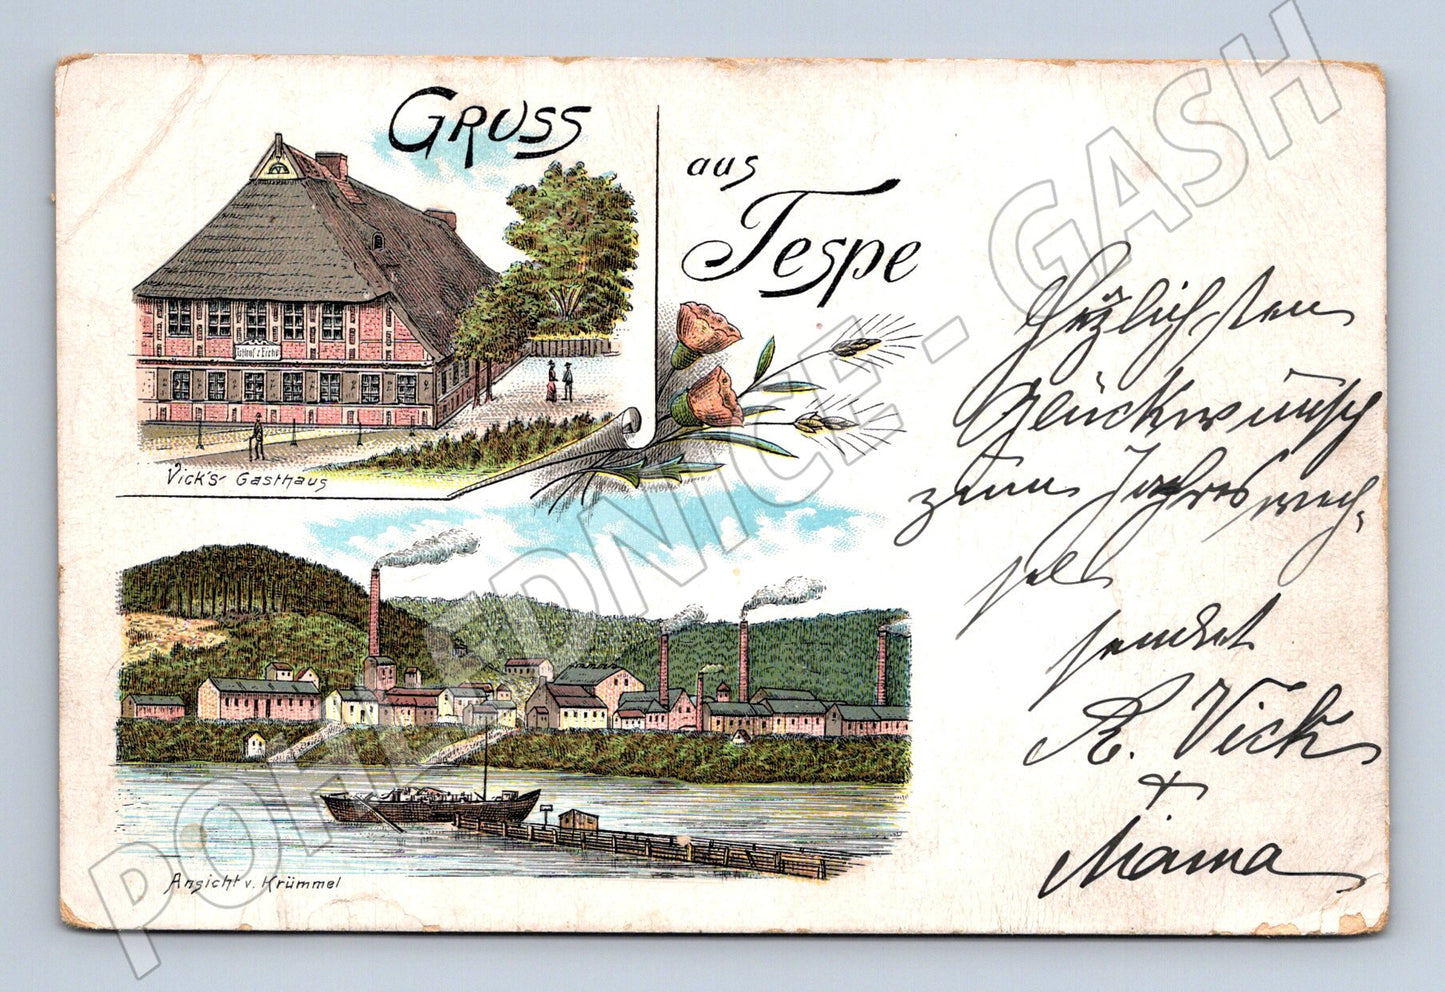 GRUSS
aus
Tespe
Vick's Gasthaus
Ansicht v. Krümmel
Herzlichsten
Glückwunsch
zum Jahreswech-
sel
sendet
R. Vick
+
Mama
POHLEDNICE - GASH